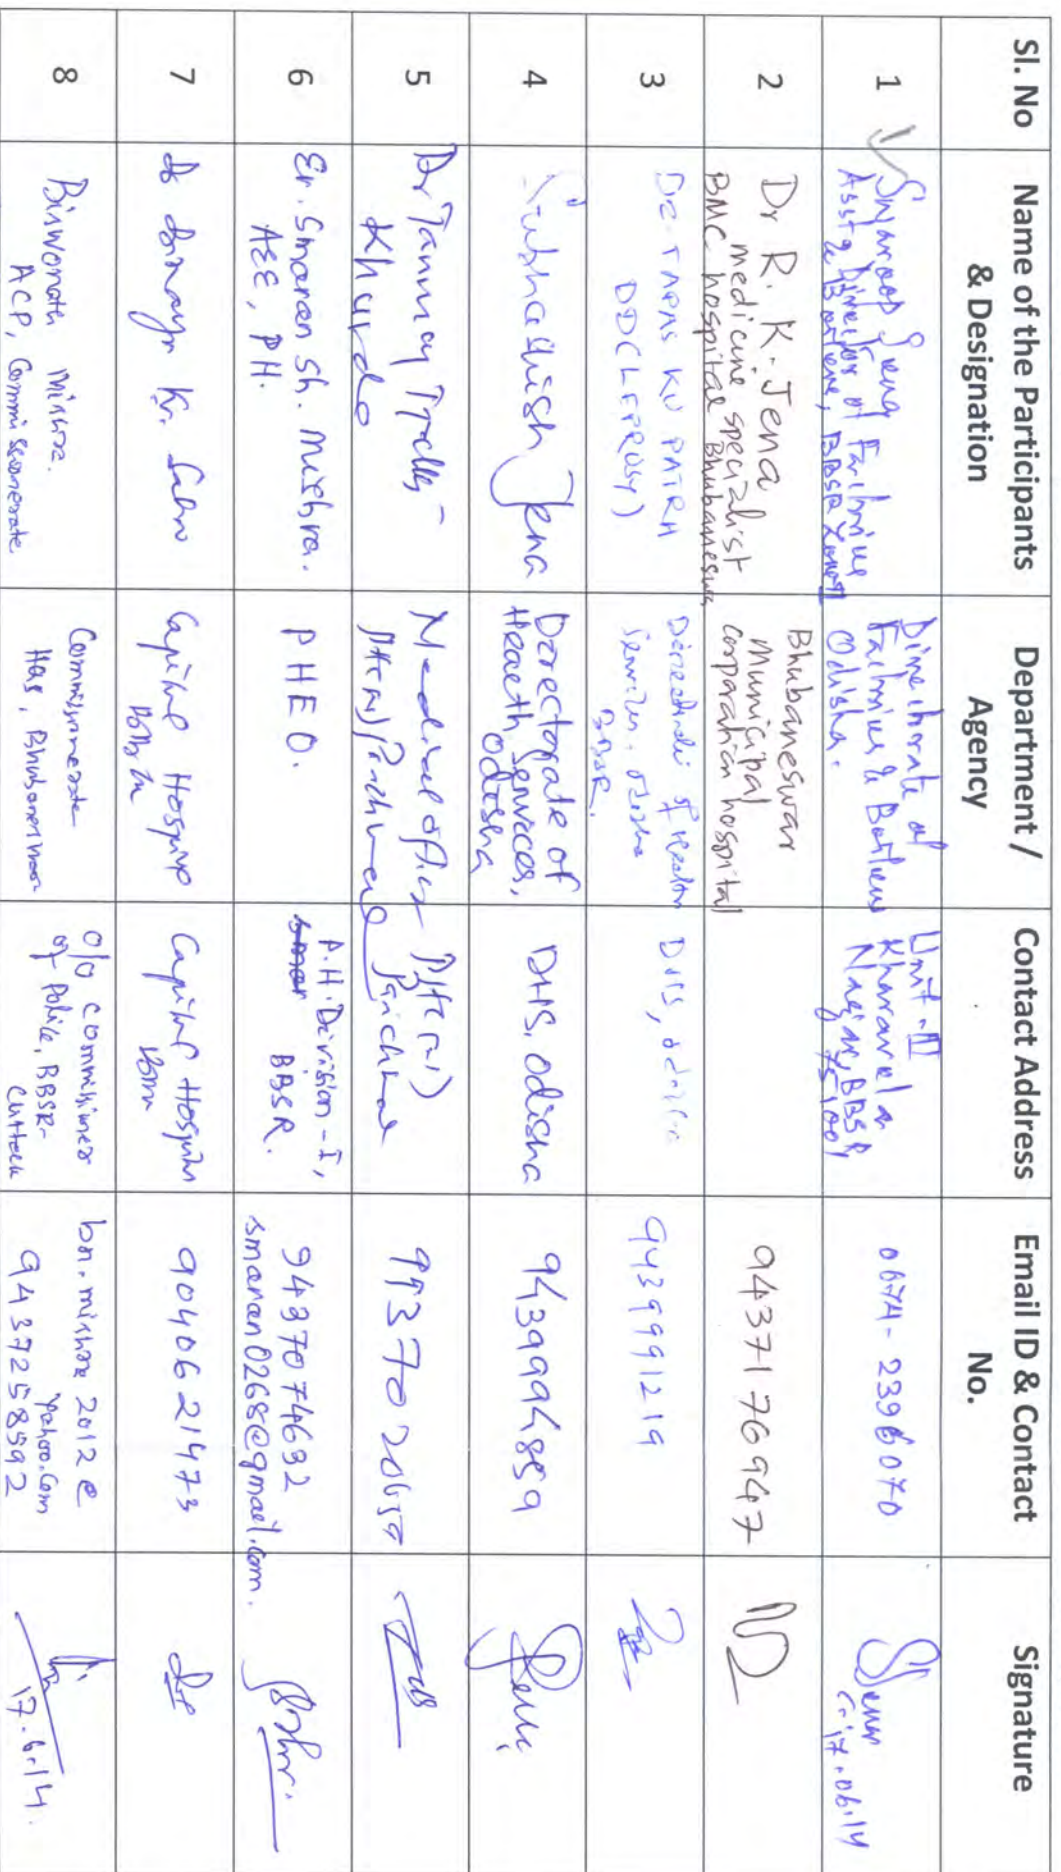 Sl. No
Name of the Participants
& Designation
Department /
Agency
Contact Address
Email ID & Contact
No.
Signature
1
Swaroop Jena
Asst. Director of Factories
& Boilers, BBSR Zone
Directorate of
Factories & Boilers
Odisha.
Unit-III
Kharavela
Nagar, BBSR
751001
0674-2396070
17.06.14
2
Dr R. K. Jena
medicine specialist
BMC hospital Bhubaneswar
Bhubaneswar
Municipal
Corporation hospital
9437176947
3
Dr TAPAS KU PATRA
DD(LEPROSY)
Directorate of Health
Services, Odisha
BBSR.
DHS, Odisha
9439991219
4
Subhashish Jena
Directorate of
Health Services,
Odisha
DHS, Odisha
9439994859
5
Dr Tanmay
Khurda
Medical officer
PHC(N)
PHC(N)
99370
6
Er. Smaran Sh. Mishra.
AEE, PH.
PHEO.
P.H. Division-I,
BBSR.
9437074692
smaran0268@gmail.com.
7
Dr Binay Kr. Sahu
Capital Hospital
BBSR
Capital Hospital
9040621473
8
Biswonath Mishra.
ACP, Commissionerate
Commissionerate
Hqs, Bhubaneswar
O/O Commissioner
of Police, BBSR-
Cuttack
bn.mishra2012@
yahoo.com
9437258592
17.6.14.